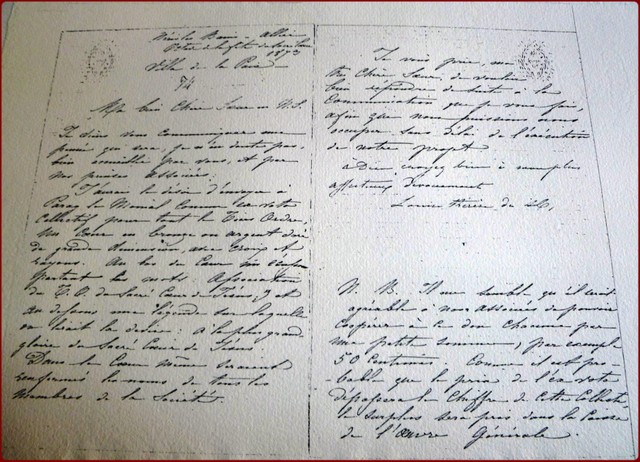 Octave de la fête du Sacré Cœur
1873
Ville de la Paix
Ma bien Chère Sœur en N. S.
Je viens vous communiquer une
pensée qui sera, je n'en doute pas,
bien accueillie par vous, et par
nos pieuses associées.
J'aurais le désir d'envoyer à
Paray le Monial comme ex-voto
collectif pour tout le Tiers Ordre,
un Cœur en bronze ou argent doré
de grande dimension, avec Croix et
rayons. Au bas du Cœur un écusson
portant les mots Association
du T. O. du Sacré Cœur de Jésus, et
au dessous une légende sur laquelle
on lirait la devise : à la plus grande
gloire du Sacré Cœur de Jésus
Dans le Cœur même seraient
renfermés les noms de tous les
Membres de la Société.
Je vous prie, ma
très Chère Sœur, de vouloir
bien répondre de suite à la
Communication que je vous fais,
afin que nous puissions nous
occuper sans délai de l'exécution
de notre projet
à Dieu, croyez bien à mon plus
affectueux dévouement
Louise Thérèse de
N. B. Il me semble qu'il serait
agréable à nos Associées de pouvoir
coopérer à ce don chacune par
une petite somme, par exemple
50 Centimes. Comme il est pro-
-bable que le prix de l'ex-voto
dépassera le Chiffre de Cette Collecte,
le surplus sera pris dans la Caisse
de l'Œuvre Générale.